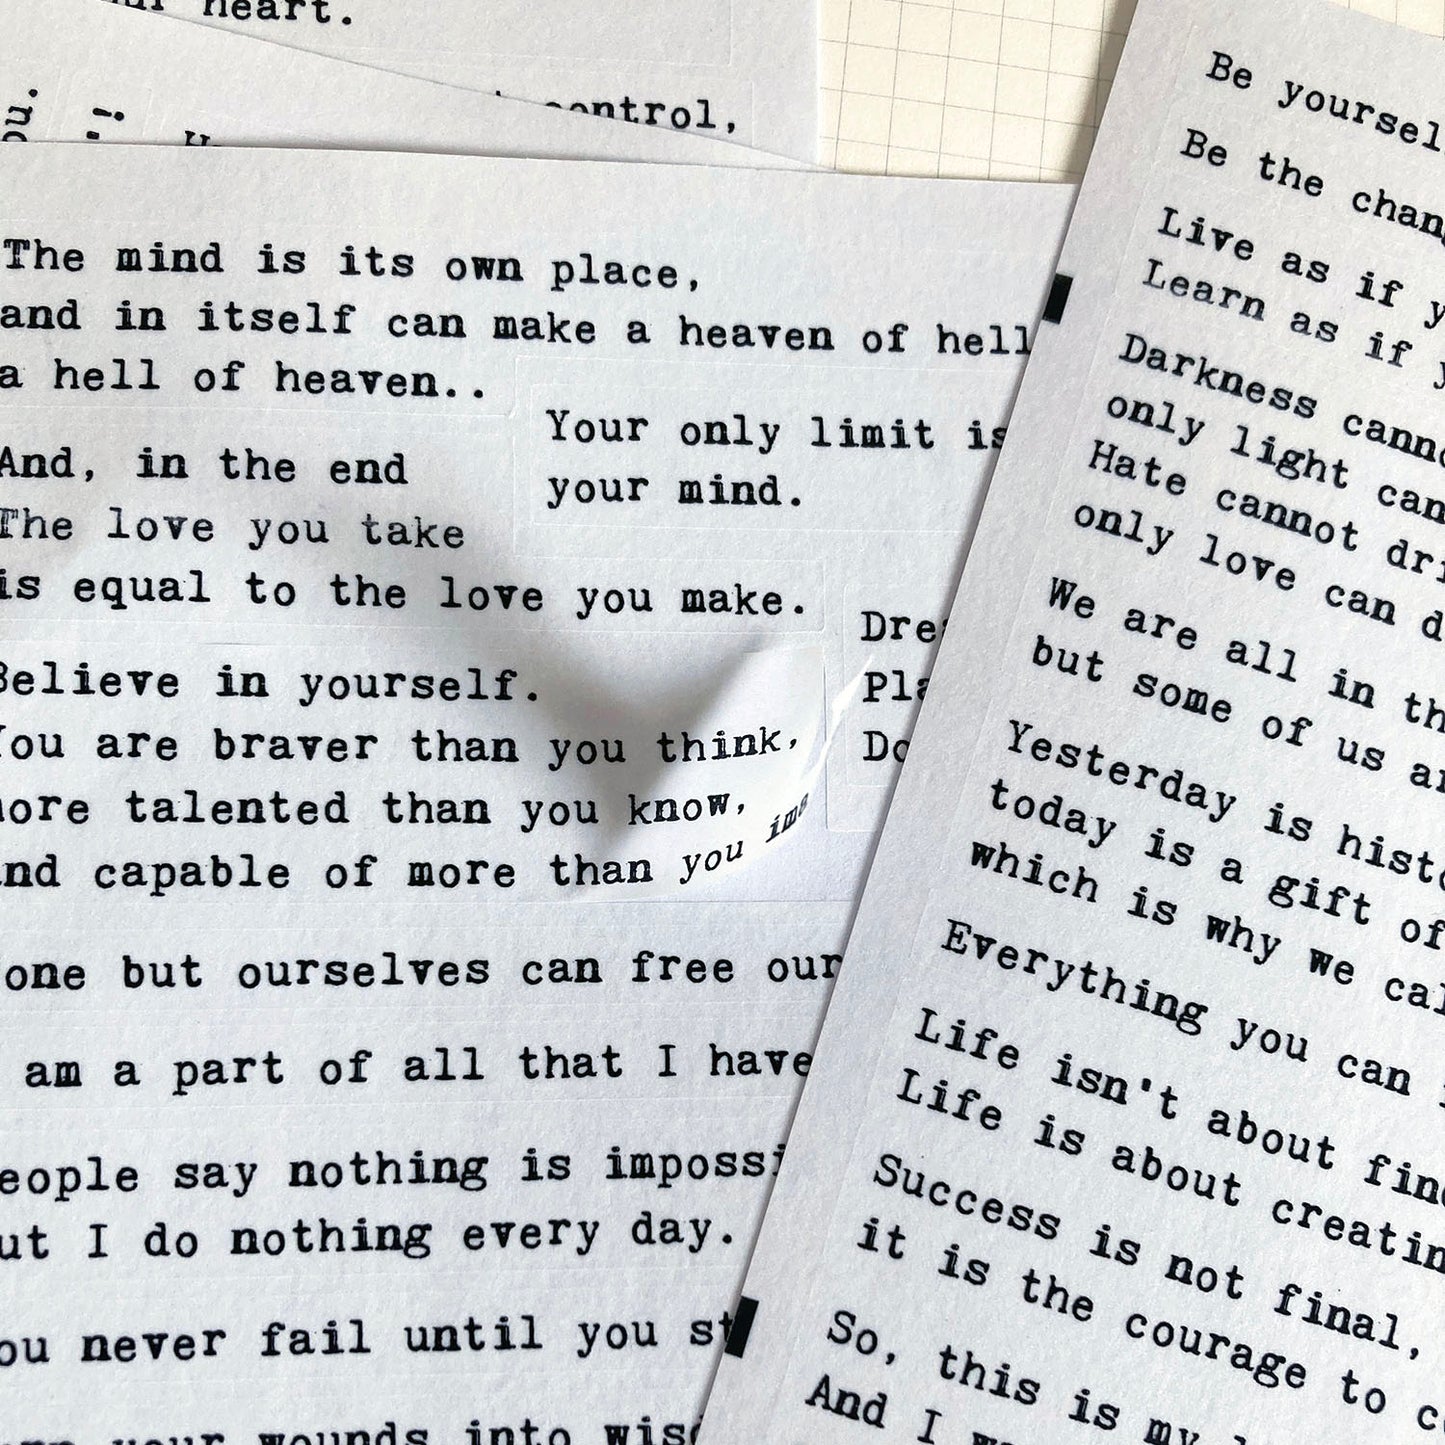 heart.
control,
The mind is its own place,
and in itself can make a heaven of hell
a hell of heaven..
Your only limit is
your mind.
And, in the end
The love you take
is equal to the love you make.
Believe in yourself.
You are braver than you think,
more talented than you know,
and capable of more than you
one but ourselves can free
am a part of all that I have
say nothing is
I do nothing every day.
never fail until you
your wounds into
Be
Be the
Live as if
Learn as if
Darkness
only light can
Hate cannot
only love can
We are all in
but some of us
Yesterday is
today is a gift of
which is why we
Everything you can
Life isn't about
Life is about
Success is not final,
it is the courage to
So, this is my
And I